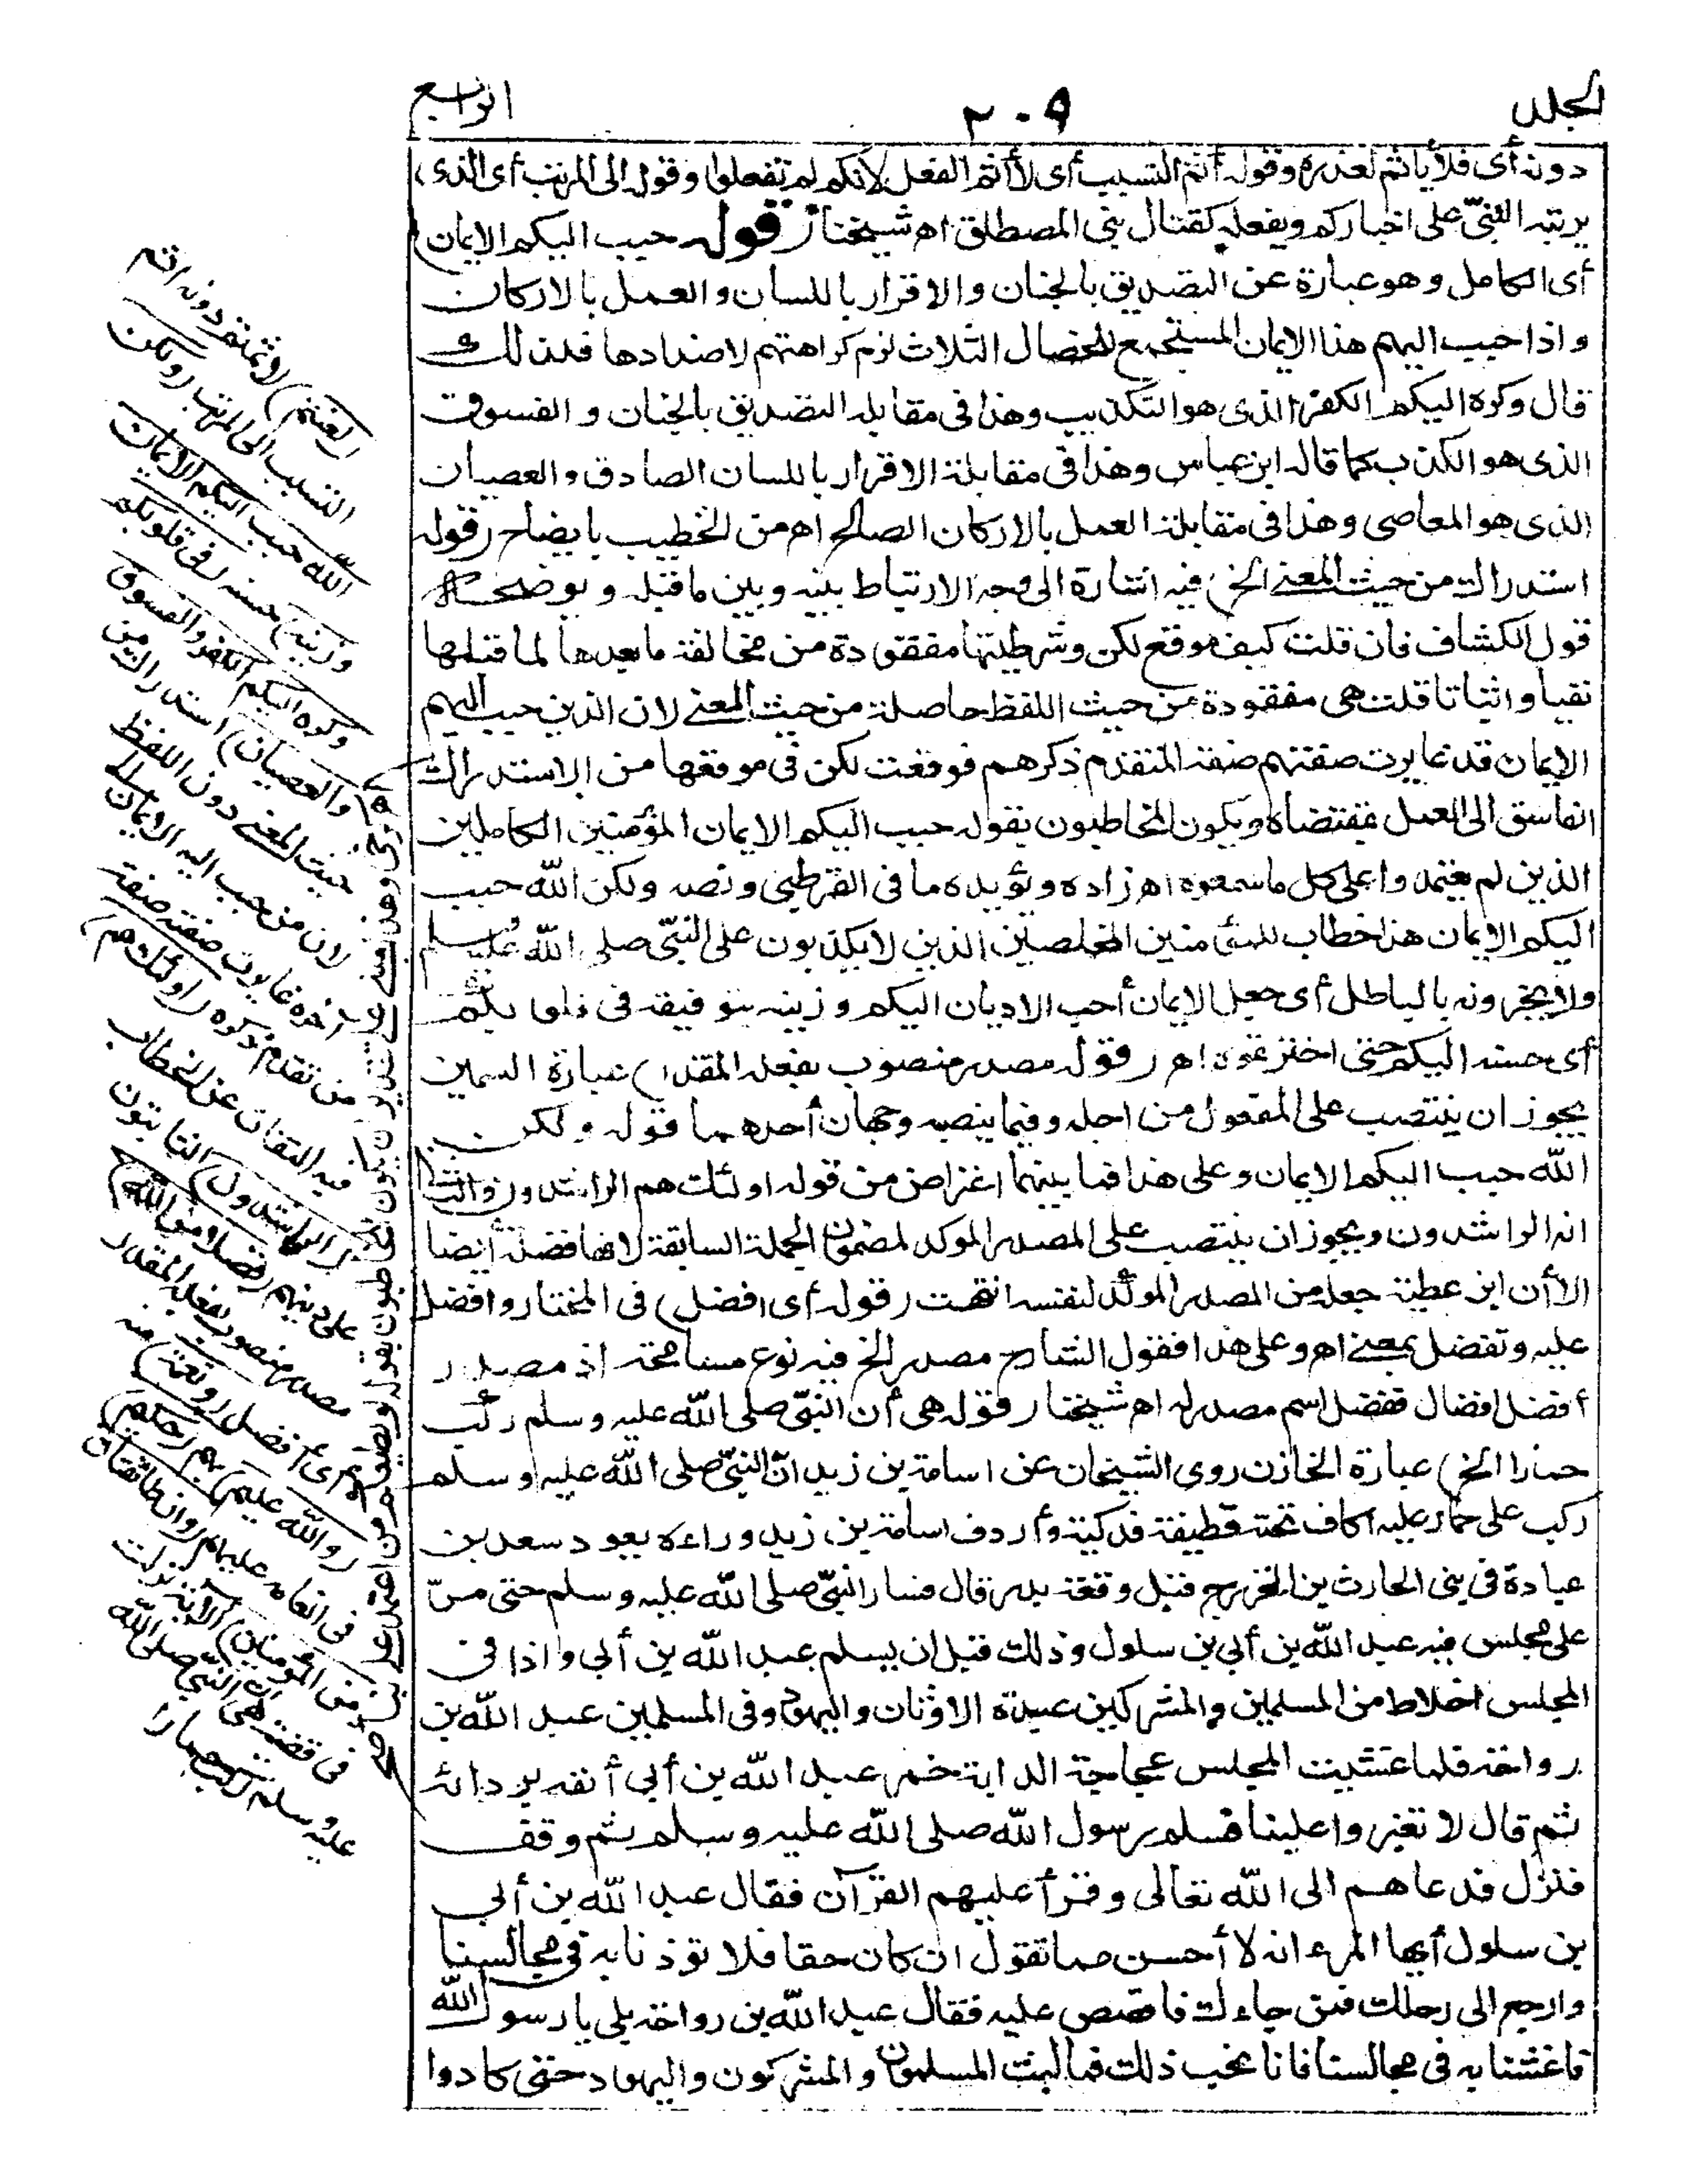 الجلد
٢٠٩
الرابع
دونه أى فلا يأثم لعذره وقوله أثم التسبب أى لا أثم الفعل لأنكم لم تفعلوا وقوله الى المرتب أى الذى
يرتبه النبىّ على اخباركم ويفعله كقتال بنى المصطلق اه شيخنا (قوله حبب اليكم الايمان)
أى الكامل وهو عبارة عن التصديق بالجنان والاقرار باللسان والعمل بالاركان
واذا حبب اليهم هذا الايمان المستجمع للخصال الثلاث لزم كراهتهم لاضدادها فلذلك
قال وكره اليكم الكفر الذى هو التكذيب وهذا فى مقابلة التصديق بالجنان والفسوق
الذى هو الكذب كما قاله ابن عباس وهذا فى مقابلة الاقرار باللسان الصادق والعصيان
الذى هو المعاصى وهذا فى مقابلة العمل بالاركان الصالح اه من الخطيب بايضاح (قوله
استدراك من حيث المعنى الخ) فيه اشارة الى وجه الارتباط بينه وبين ما قبله ويوضحه
قول الكشاف فان قلت كيف موقع لكن وشرطيتها مفقودة من مخالفة ما بعدها لما قبلها
نفيا واثباتا قلت هى مفقودة من حيث اللفظ حاصلة من حيث المعنى لان الذين حبب اليهم
الايمان قد غايرت صفتهم صفة المتقدم ذكرهم فوقعت لكن فى موقعها من الاستدراك
الفاسق الى العمل بمقتضاه ويكون المخاطبون بقوله حبب اليكم الايمان المؤمنين الكاملين
الذين لم يعتمدوا على كل ما سمعوه اه زاده ويؤيده ما فى القرطبى ونصه ولكن الله حبب
اليكم الايمان هذا خطاب للمؤمنين المخلصين الذين لا يكذبون على النبىّ صلى الله عليه وسلم
ولا يخبرونه بالباطل أى جعل الايمان أحب الاديان اليكم وزينه بتوفيقه فى قلوبكم
أى حسنه اليكم حتى اخترتموه اه (قوله مصدر منصوب بفعله المقدر) عبارة السمين
يجوز ان ينتصب على المفعول من اجله وفيما ينصبه وجهان أحدهما قوله ولكن
الله حبب اليكم الايمان وعلى هذا فما بينهما اعتراض من قوله اولئك هم الراشدون والثانى
انه الراشدون ويجوز ان ينتصب على المصدر الموكد لمضمون الجملة السابقة لانها فضلة أيضا
الا أن ابن عطية جعله من المصدر الموكد لنفسه انتهت (قوله أى افضل) فى المختار وافضل
عليه وتفضل بمعنى اه وعلى هذا فقول الشارح مصدر الخ فيه نوع مسامحة اذ مصدر
أفضل افضال ففضل اسم مصدر له اه شيخنا (قوله هى أن النبىّ صلى الله عليه وسلم ركب
حمارا الخ) عبارة الخازن روى الشيخان عن اسامة بن زيد انّ النبىّ صلى الله عليه وسلم
ركب على حمار عليه اكاف تحته قطيفة فدكية وأردف اسامة بن زيد وراءه يعود سعد بن
عبادة فى بنى الحارث بن الخزرج قبل وقعة بدر قال فسار النبىّ صلى الله عليه وسلم حتى مرّ
على مجلس فيه عبد الله بن أبي بن سلول وذلك قبل ان يسلم عبد الله بن أبي واذا فى
المجلس اخلاط من المسلمين والمشركين عبدة الاوثان واليهود وفى المسلمين عبد الله بن
رواحة فلما غشيت المجلس عجاجة الدابة خمر عبد الله بن أبي أنفه بردائه
ثم قال لا تغبروا علينا فسلم رسول الله صلى الله عليه وسلم ثم وقف
فنزل فدعاهم الى الله تعالى وقرأ عليهم القرآن فقال عبد الله بن أبي
بن سلول أيها المرء انه لا أحسن مما تقول ان كان حقا فلا تؤذنا به فى مجالسنا
وارجع الى رحلك فمن جاءك فاقصص عليه فقال عبد الله بن رواحة بلى يا رسول الله
فاغشنا به فى مجالسنا فانا نحب ذلك فما لبث المسلمون والمشركون واليهود حتى كادوا
(لعنتم) لاثمتم دونه اثم
التسبب الى المرتب (ولكن
الله حبب اليكم الايمان
وزينه) حسنه (فى قلوبكم
وكره اليكم الكفر والفسوق
والعصيان) استدراك من
حيث المعنى دون اللفظ
لان من حبب اليه الايمان
الخ غايرت صفته صفة
من تقدم ذكره (اولئك هم)
فيه التفات عن الخطاب
(الراشدون) الثابتون
على دينهم (فضلا من الله)
مصدر منصوب بفعله المقدر
أى أفضل (ونعمة) منه
(والله عليم) بهم (حكيم)
فى انعامه عليهم (وان طائفتان
من المؤمنين) الآية نزلت
فى قضية هى أن النبىّ صلى الله
عليه وسلم ركب حمارا